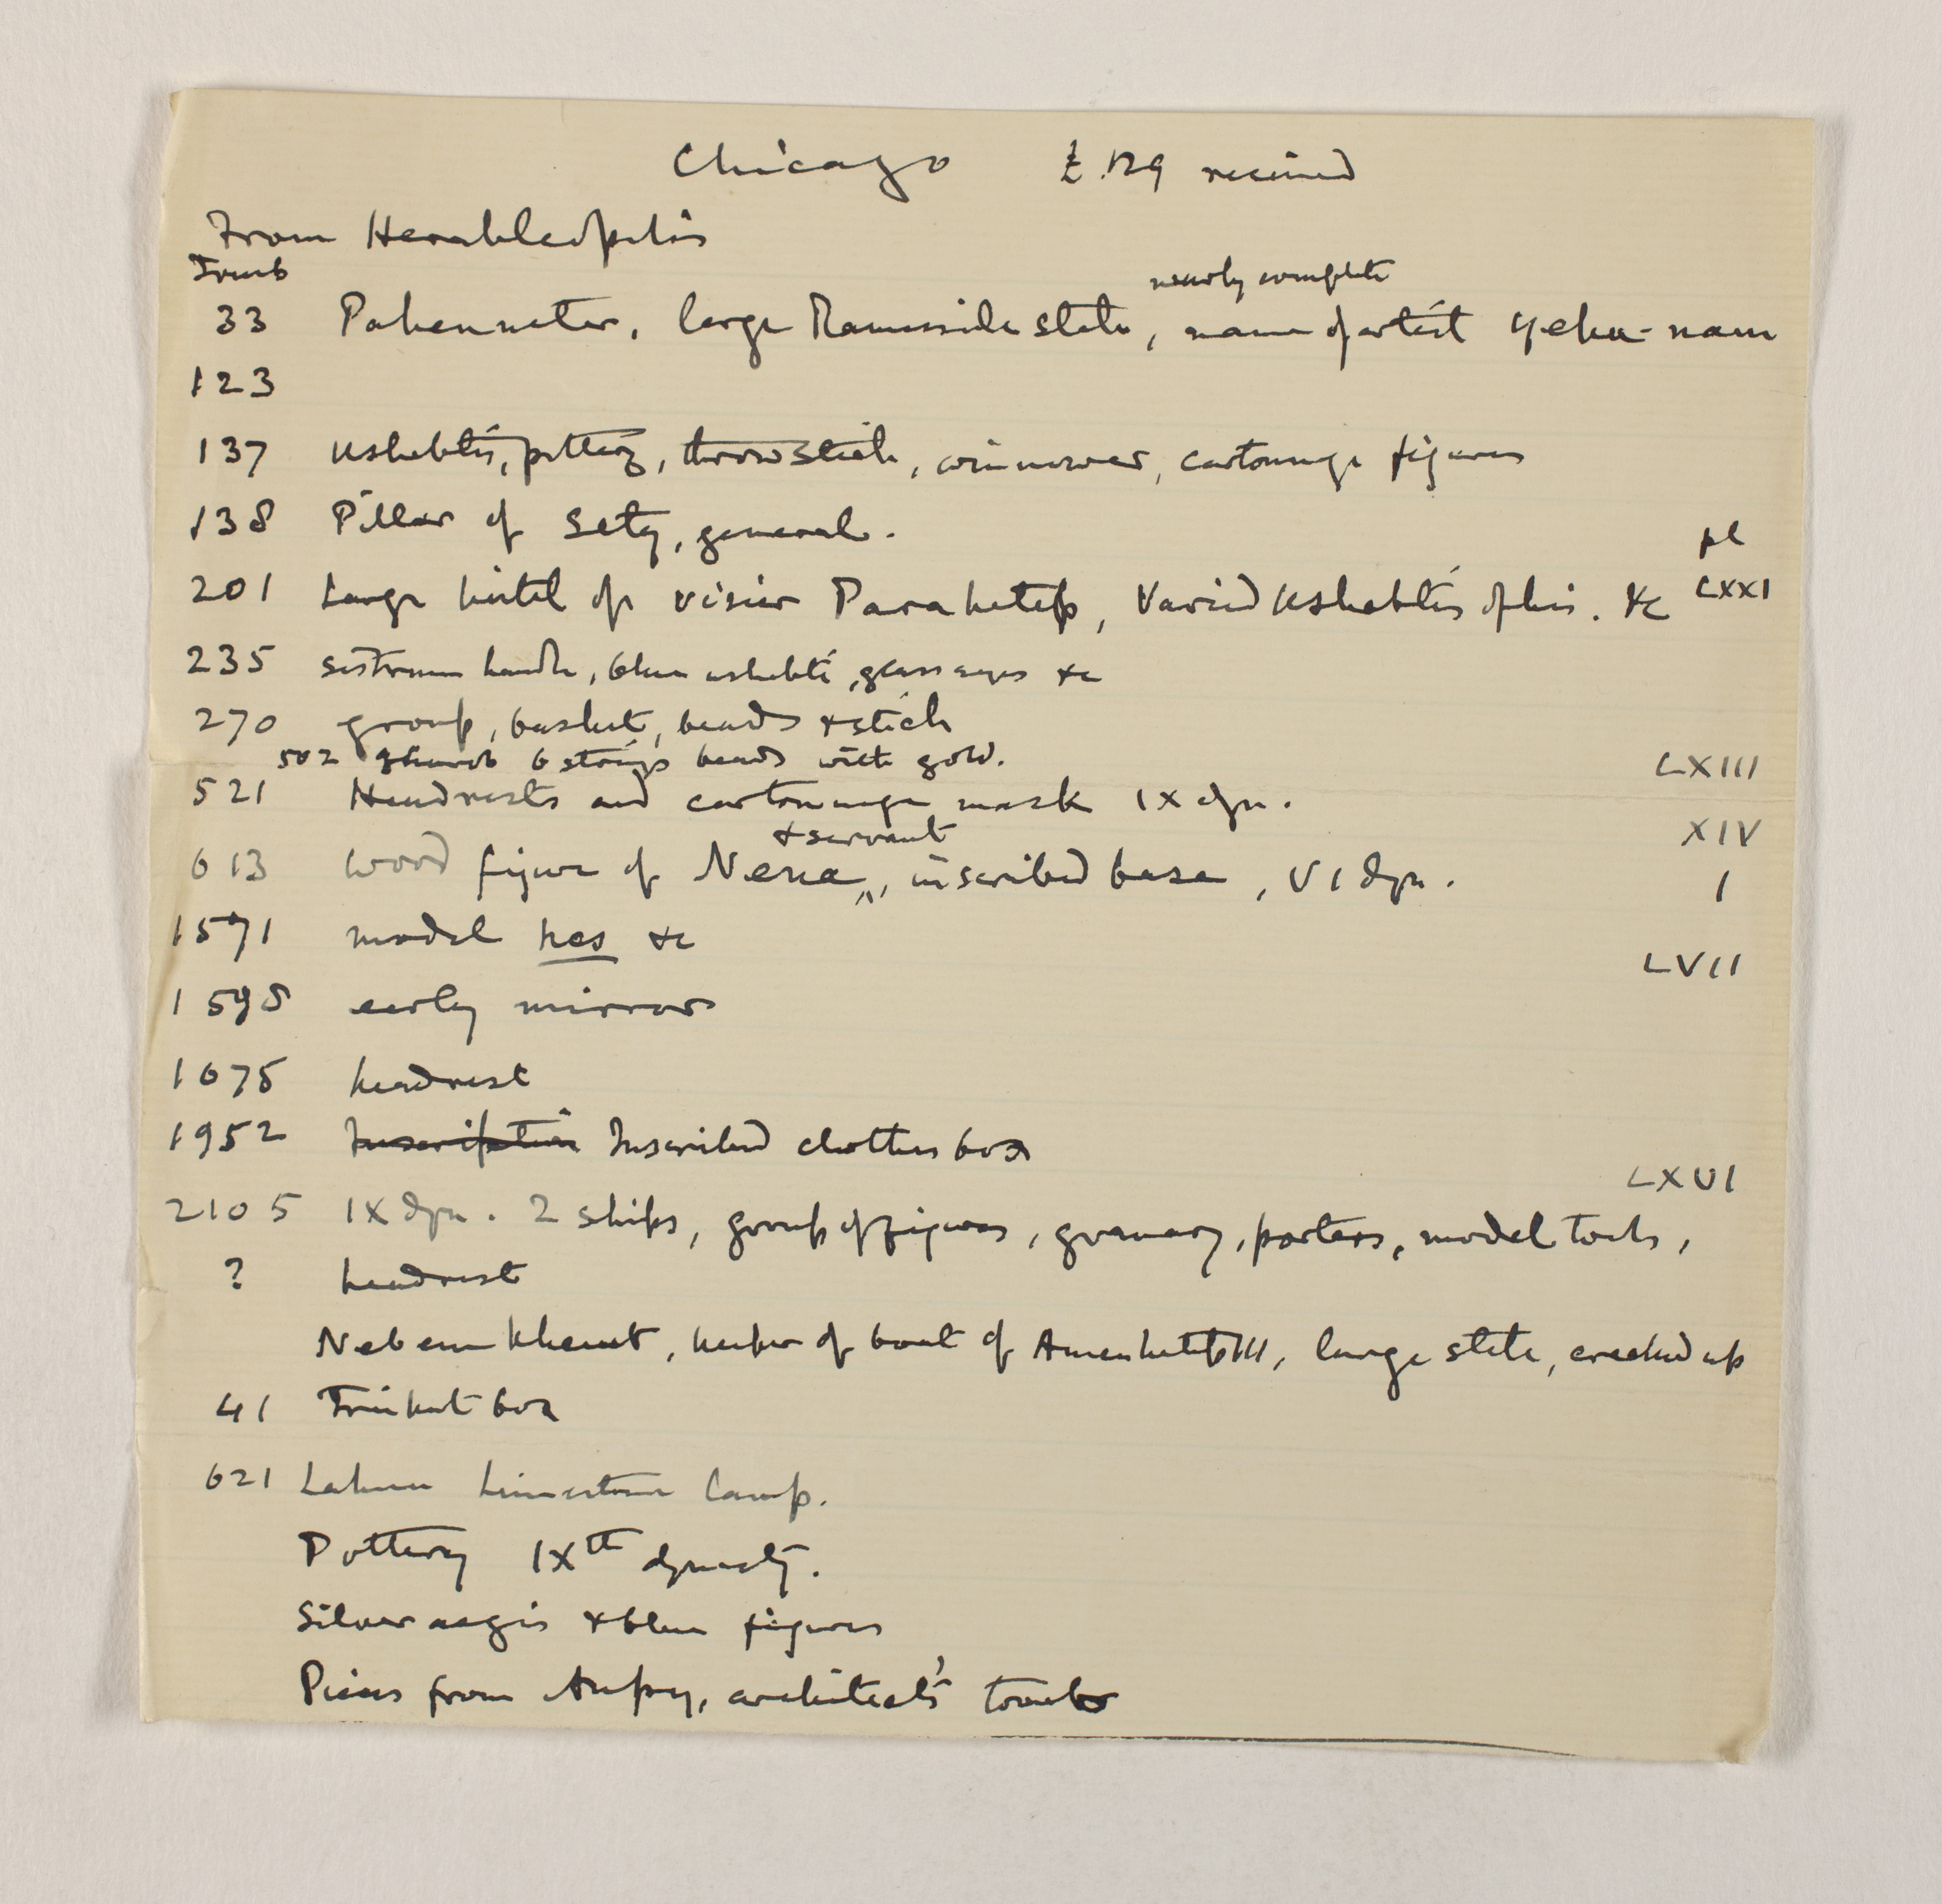 Chicago £129 received
From Herakleopolis
Tomb
nearly complete
33 Pahenneter, large Ramesside stele, name of artist Yehu-nam
123
137 Ushebtis, pottery, throwstick, winnower, cartonnage figures
138 Pillar of Sety, general.
pl
201 Large lintel of vizier Parahetep, Varied Ushebtis of his. &c LXXI
235 sistrum handle, blue ushebti, glass eyes &c
270 group, basket, beads & stick
502 Ghurob 6 strings beads with gold.
LXIII
521 Headrests and cartonnage mask IX dyn.
& servant XIV
613 wood figure of Nena, inscribed base, VI dyn. I
1591 model hes &c
LVII
1598 early mirror
1675 headrest
1952 Inscription Inscribed clothes box
LXVI
2105 IX dyn. 2 ships, group of figures, granary, porters, model tools,
? headrest
Nebenkhemt, keeper of boat of Amenhetep III, large stele, cracked up
41 Trinket box
621 Lahun Limestone Lamp.
Pottery IXth dynasty.
Silver aegis & blue figures
Pieces from Anpy, architect's tomb